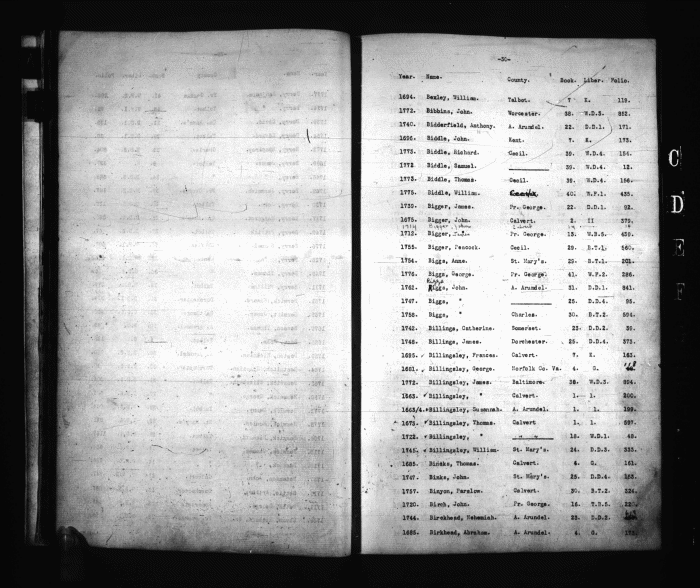 -30-
Year. Name. County. Book. Liber. Folio.
1694. Bexley, William. Talbot. 7 K. 119.
1772. Bibbins, John. Worcester. 38. W.D.3. 852.
1740. Bidderfield, Anthony. A. Arundel. 22. D.D.1. 171.
1696. Biddle, John. Kent. 7. K. 173.
1773. Biddle, Richard. Cecil. 39. W.D.4. 154.
1773. Biddle, Samuel. 39. W.D.4. 12.
1773. Biddle, Thomas. Cecil. 39. W.D.4. 156.
1775. Biddle, William. 40. W.F.1. 435.
1739. Bigger, James. Pr. George. 22. D.D.1. 92.
1675. Bigger, John. Calvert. 2. II 379.
1712. Bigger, Pr. George. 13. W.B.5. 409.
1755. Bigger, Peacock. Cecil. 29. B.T.1. 560.
1754. Biggs, Anne. St. Mary's. 29. B.T.1. 201.
1776. Biggs, George. Pr. George. 41. W.F.2. 286.
Biggs
1762. John. A. Arundel. 31. D.D.1. 841.
1747. Biggs, " 25. D.D.4. 95.
1758. Biggs, " Charles. 30. B.T.2. 594.
1742. Billings, Catherine. Somerset. 23. D.D.2. 39.
1748. Billings, James. Dorchester. 25. D.D.4. 373.
1695. Billingsley, Frances. Calvert. 7. K. 163.
1681. Billingsley, George. Norfolk Co. Va. 4. G.
1772. Billingsley, James. Baltimore. 38. W.D.3. 894.
1663. Billingsley, " Calvert. 1. 1. 200.
1663/4. Billingsley, Susannah. A. Arundel. 1. 1. 199.
1675. Billingsley, Thomas. Calvert 1. 1. 597.
1722. Billingsley, " 18. W.D.1. 48.
1745. Billingsley, William. St. Mary's. 24. D.D.3. 333.
1685. Bincks, Thomas. Calvert. 4. G. 161.
1747. Binks, John. St. Mary's. 25. D.D.4. 153.
1757. Binyon, Parslow. Calvert. 30. B.T.2. 324.
1720. Birch, John. Pr. George. 16. T.B.5.
1744. Birckhead, Nehemiah. A. Arundel. 23. D.D.2.
1685. Birkhead, Abraham. A. Arundel. 4. G.
C
D
E
F